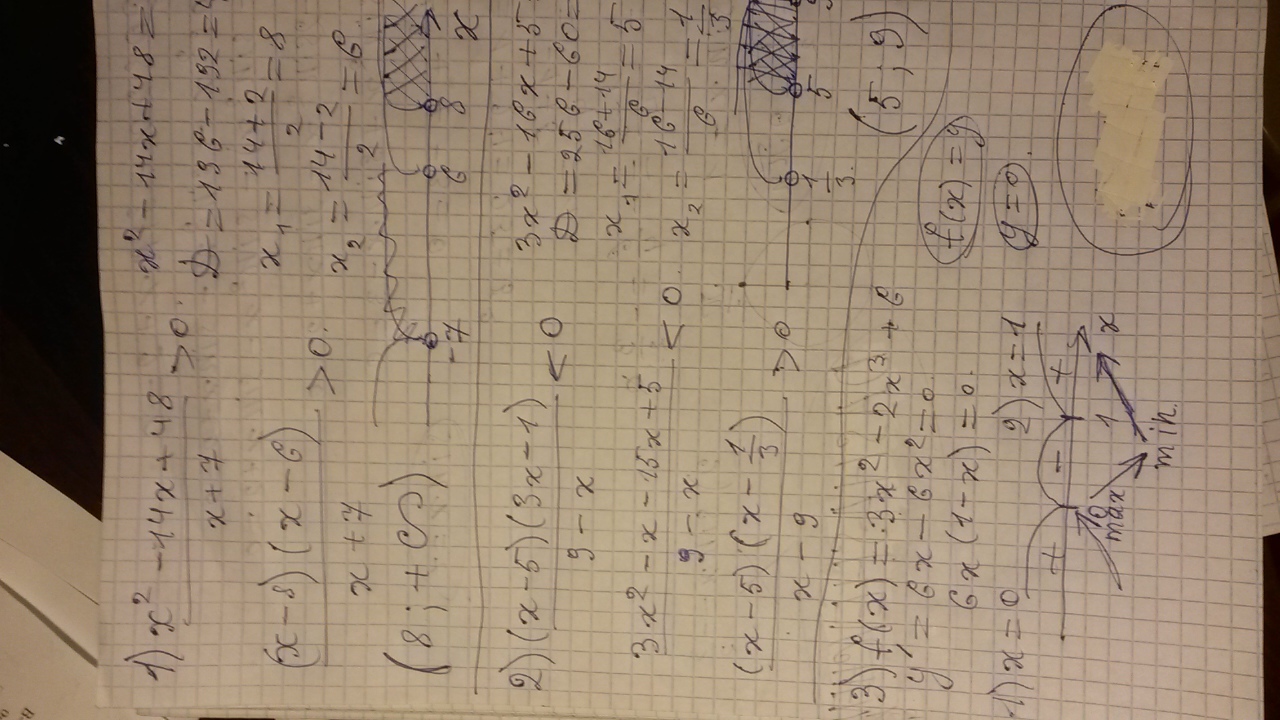 1) x² - 14x + 48 / x + 7 > 0
x² - 14x + 48 =
D = 196 - 192 =
x₁ = 14 + 2 / 2 = 8
x₂ = 14 - 2 / 2 = 6
(x - 8)(x - 6) / x + 7 > 0
-7 6 8 x
(8 ; + ∞)
2) (x - 5)(3x - 1) / 9 - x < 0
3x² - 16x + 5
D = 256 - 60 =
x₁ = 16 + 14 / 6 = 5
x₂ = 16 - 14 / 6 = 1/3
3x² - x - 15x + 5 / 9 - x < 0
(x - 5)(x - 1/3) / x - 9 > 0
1/3 5
(5 ; 9)
3) f(x) = 3x² - 2x³ + 6
f(x) = y
y' = 6x - 6x² = 0
y = 0
6x(1 - x) = 0
1) x = 0 2) x = 1
+ - +
0 1 x
max min